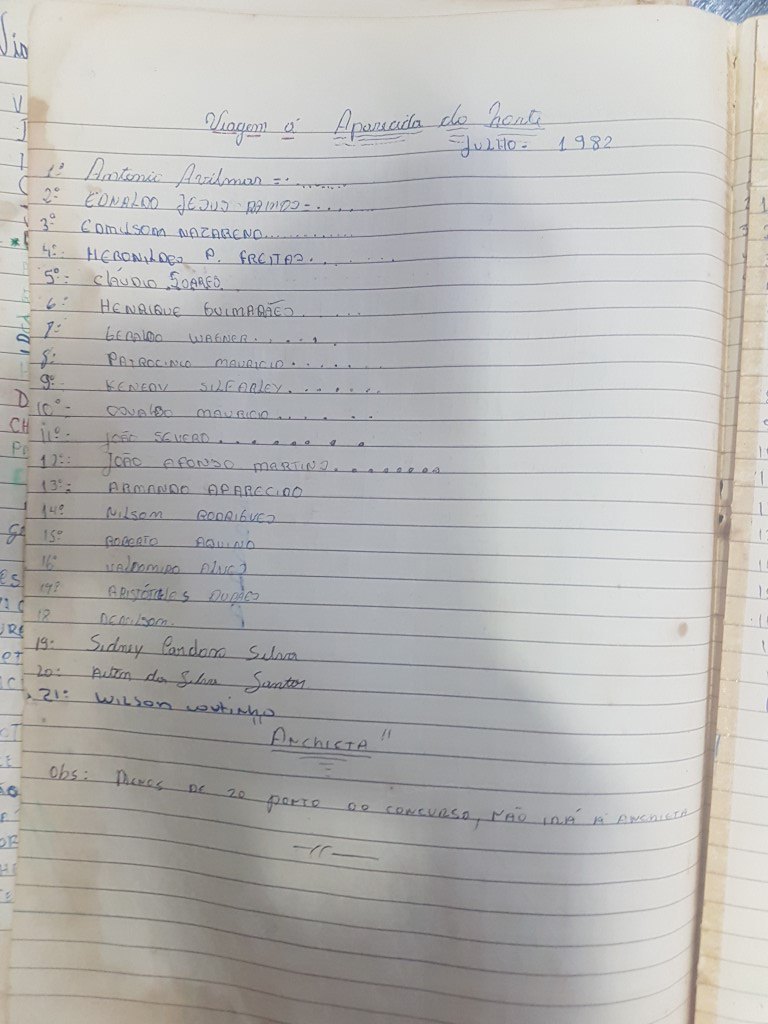 Viagem á Aparecida do Norte
Julho = 1982
1º Antonio Avilmar = . ........
2º EDNALDO JESUS RAMOS = . .....
3º EDMILSOM NAZARENO............
4º: HERONILDES P. FREITAS. ......
5º: CLÁUDIO SOARES.
6: HENRIQUE GUIMARÃES. .....
7: GERALDO WAGNER. .....
8: PATROCINIO MAURICIO. ......
9: KENEDY SILFARLEY. ......
10º: OSVALDO MAURICIO. ......
11º: JOÃO SEVERO. ........
12º: JOÃO AFONSO MARTINS. ........
13º: ARMANDO APARECIDO
14º NILSOM RODRIGUES
15º ROBERTO AQUINO
16º VALDOMIRO ALVES
17º ARISTÓTELES DURÃES
18 DENILSOM.
19: Sidney Cardoso Silva
20: Ailton da Silva Santos
21: WILSON COUTINHO
ANCHISTA"
Obs: MENOS DE 20 PONTO DO CONCURSO, NÃO IRÁ Á ANCHISTA